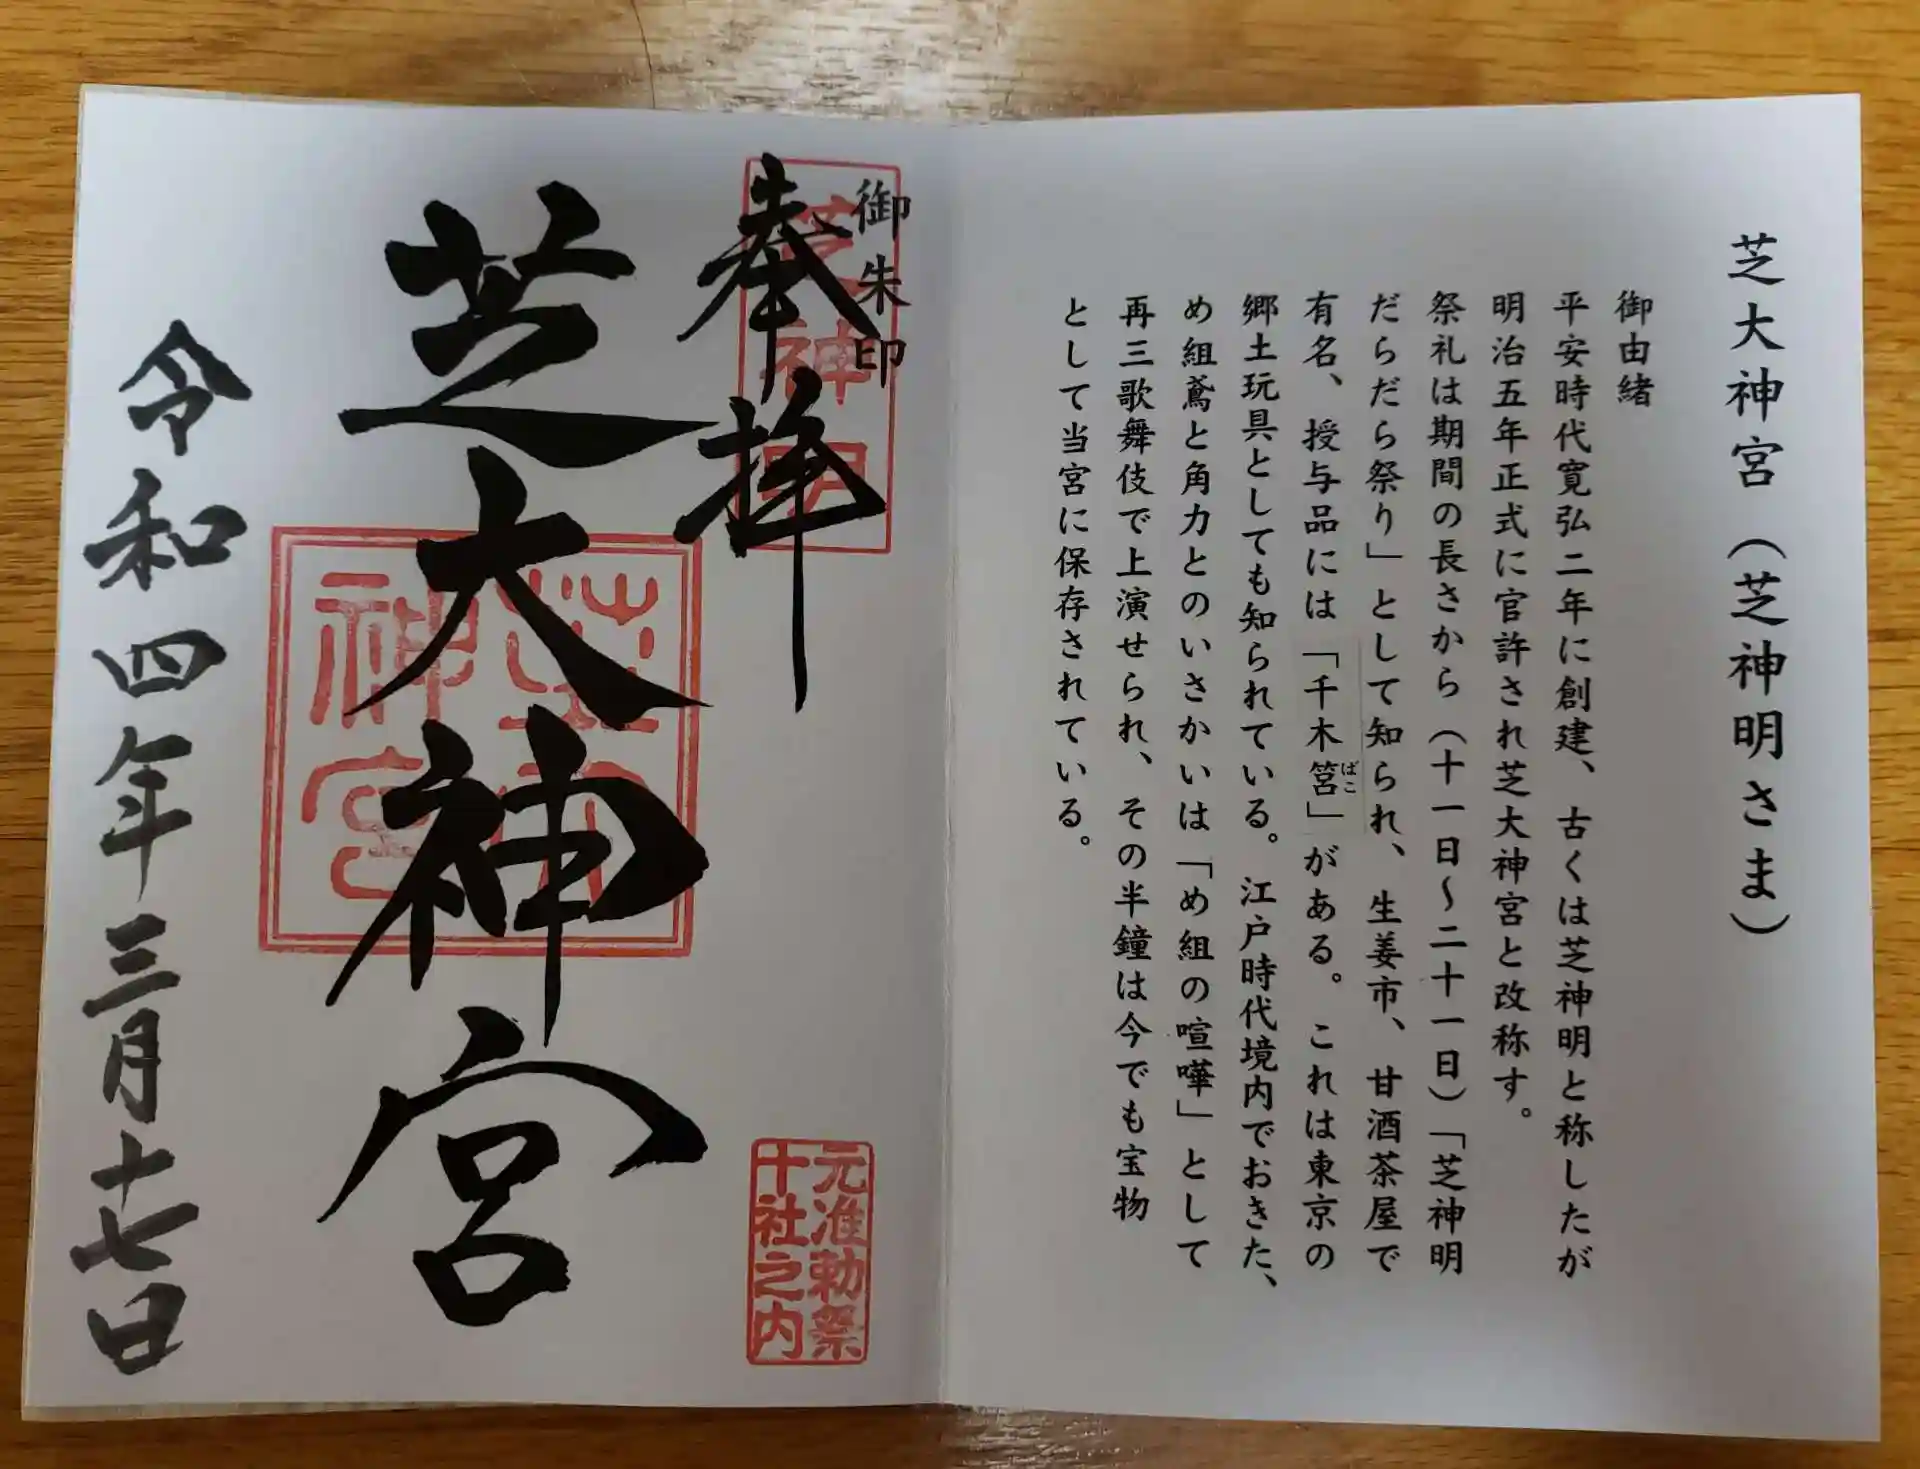 芝大神宮（芝神明さま）
御由緒
平安時代寛弘二年に創建、古くは芝神明と称したが
明治五年正式に官許され芝大神宮と改称す。
祭礼は期間の長さから（十一日～二十一日）「芝神明
だらだら祭り」として知られ、生姜市、甘酒茶屋で
有名、授与品には「千木筥」がある。これは東京の
ばこ
郷土玩具としても知られている。江戸時代境内でおきた、
め組鳶と角力とのいさかいは「め組の喧嘩」として
再三歌舞伎で上演せられ、その半鐘は今でも宝物
として当宮に保存されている。
御朱印
奉拝
芝神明
芝大神宮
芝大
神宮
元准勅祭
十社之内
令和四年三月十七日